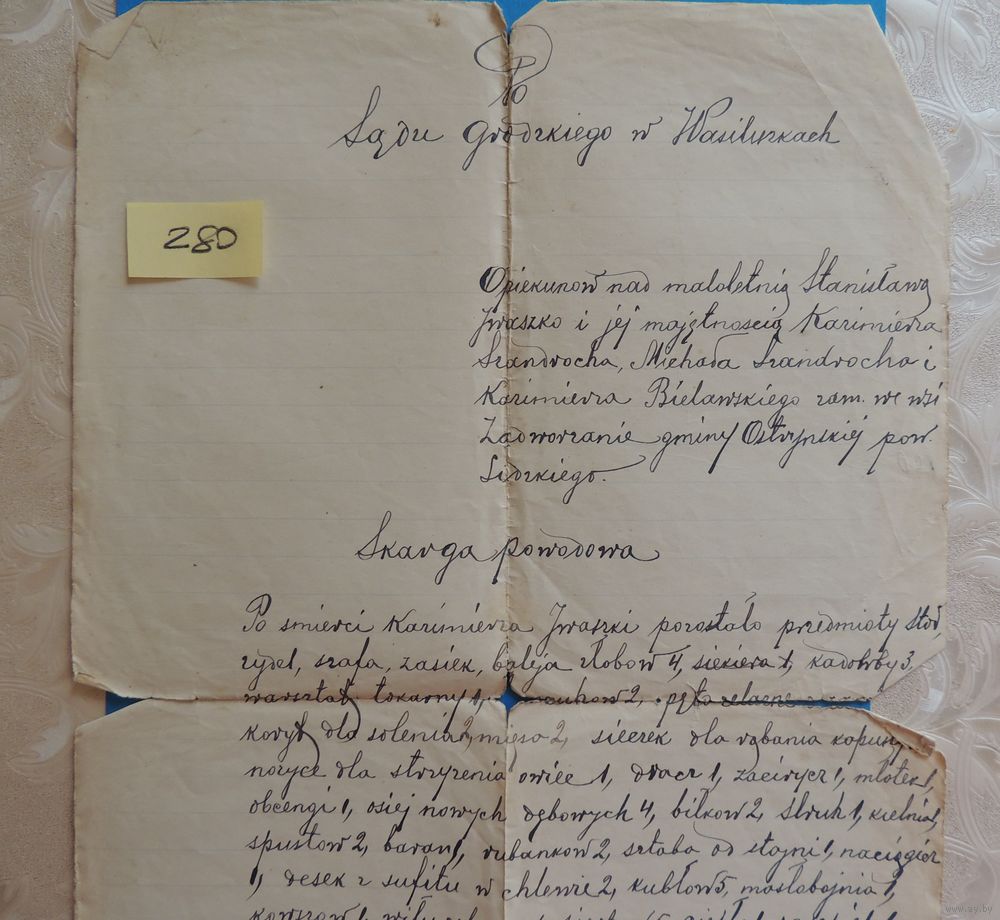 Do
Sądu Grodzkiego w Wasiliszkach
280
Opiekunow nad maloletnią Stanisławą
Jwaszko i jej majętnoscią Kazimierza
Szandrocha, Michała Szandrocha i
Kazimierza Bielawskiego zam. we wsi
Zadworzanie gminy Ostrynskiej pow.
Lidzkiego.
Skarga powodowa
Po smierci Kazimierza Jwaszki pozostało przedmioty stoł,
zydel, szafa, zasiek, baleja złobow 4, siekiera 1, kadołby 3,
warsztat tokarny 1, 2, pęto zelazne
koryt dla solenia 2, mięsa 2, sieczek dla rąbania kapusty
nozyce dla strzyzenia owiec 1, dracz 1, mlotek 1,
obcengi 1, osiej nowych dębowych 4, bilkow 2, struh 1, kielnia 1,
spustow 2, baran 1, rubankow 2, sztaba od stajni 1,
1, desek z sufitu w chlewie 2, kubłow 5, masłobojnia 1,
www.ay.by